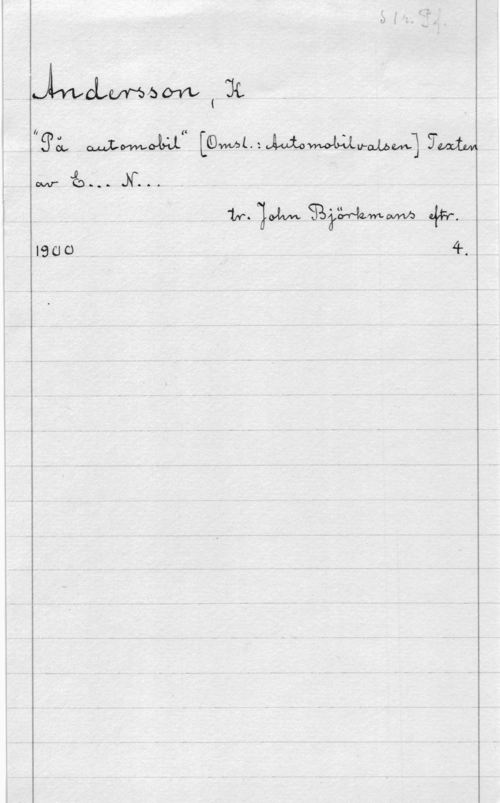 Andersson, K
"På automobil" [Omsl.: Automobilvalsen] Texten
av E... N...
tr. John Björkmans eftr.
1900 4.